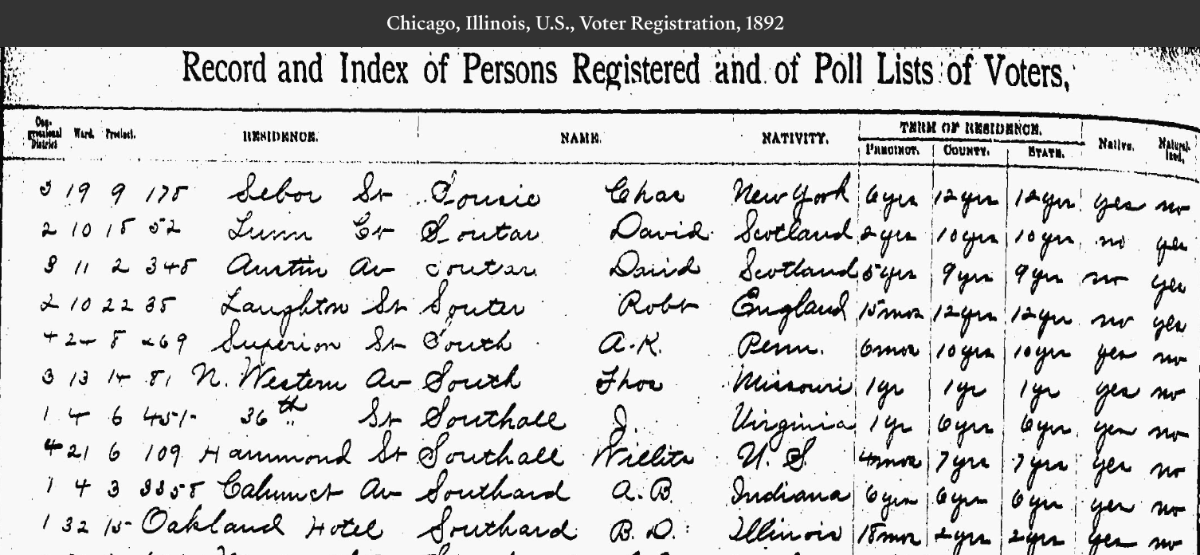 Chicago, Illinois, U.S., Voter Registration, 1892
Record and Index of Persons Registered and of Poll Lists of Voters,
Congressional District Ward. Precinct. RESIDENCE. NAME. NATIVITY. TERM OF RESIDENCE. PRECINCT. COUNTY. STATE. Native. Naturalized.
3 19 9 175 Sebor St Sousie Chas New York 6 yrs 12 yrs 12 yrs yes no
2 10 15 52 Lunn Ct Soutar David Scotland 2 yrs 10 yrs 10 yrs no yes
3 11 2 345 Austin Av Soutar David Scotland 5 yrs 9 yrs 9 yrs no yes
2 10 22 35 Laughton St Souter Robt England 15 mos 12 yrs 12 yrs no yes
4 24 8 269 Superior St South A.K. Penn. 6 mos 10 yrs 10 yrs yes no
3 13 14 81 N. Western Av South Thos Missouri 1 yr 1 yr 1 yr yes no
1 4 6 451 36th St Southall J. Virginia 1 yr 6 yrs 6 yrs yes no
4 21 6 109 Hammond St Southall Willits U.S. 4 mos 7 yrs 7 yrs yes no
1 4 3 3358 Calumet Av Southard A.B. Indiana 6 yrs 6 yrs 6 yrs yes no
1 32 15 Oakland Hotel Southard B.D. Illinois 18 mos 2 yrs 2 yrs yes no